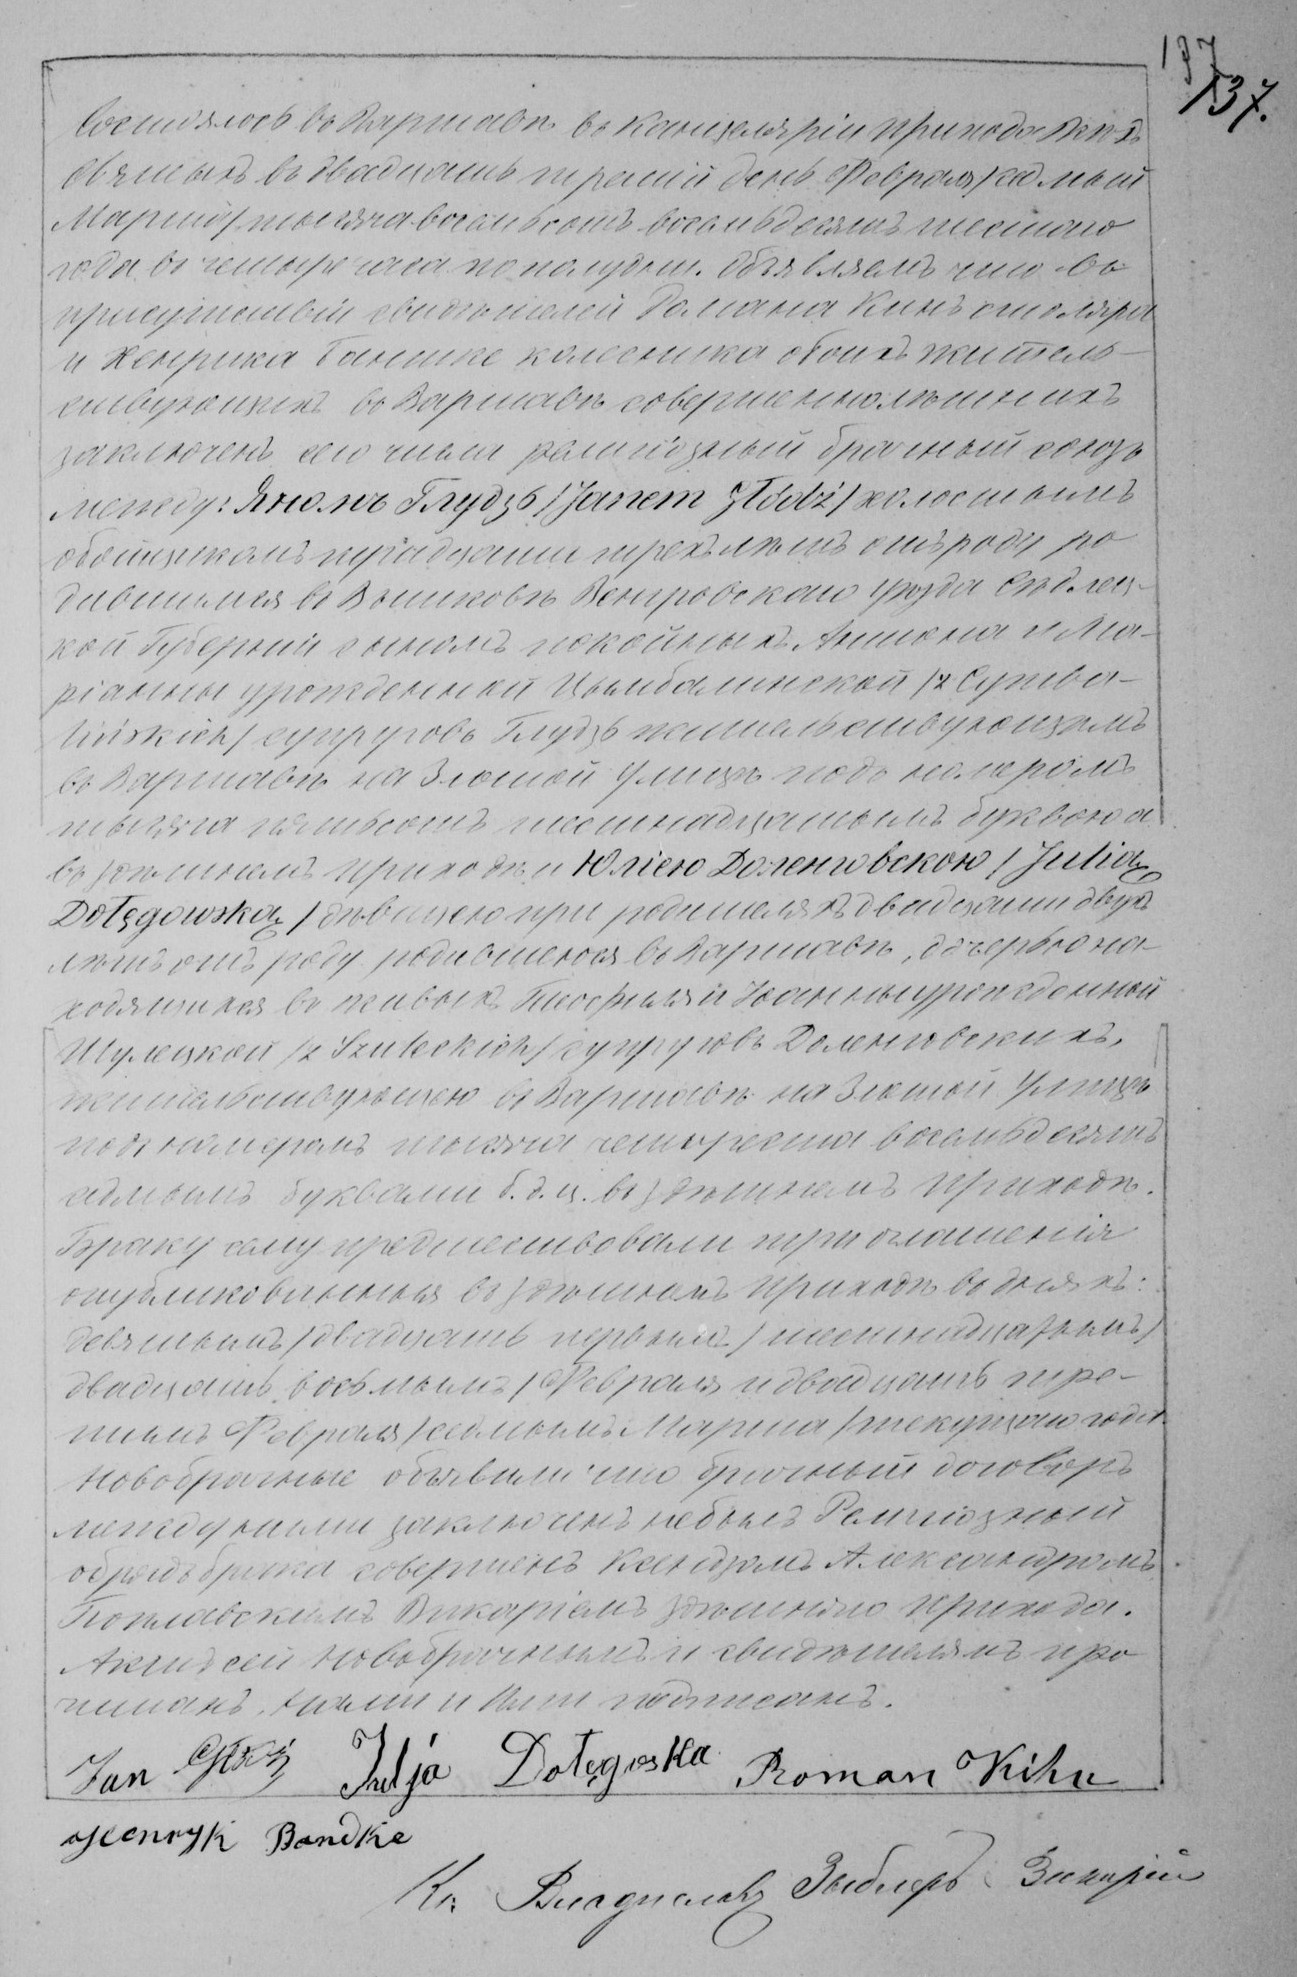 137
137.
Состоялось въ Варшавѣ въ Канцеляріи Прихода Всѣхъ
Святыхъ въ двадцать третій день Февраля /седьмый
Марта/ тысяча восемьсотъ восемьдесятъ шестаго
года въ четыре часа по полудни. Объявляемъ что въ
присутствіи свидѣтелей Романа Кинъ столяра
и Хенрика Бандке колесника обоихъ житель-
ствующихъ въ Варшавѣ совершеннолѣтнихъ
заключенъ сего числа религіозный брачный союзъ
между: Яномъ Глудзь /Janem Głódź/ холостымъ
обойщикомъ тридцати трехъ лѣтъ отъ роду ро
дившимся въ Вышковѣ Венгровскаго уѣзда Сѣдлец-
кой Губерніи сыномъ покойныхъ Антона и Ма-
ріанны урожденной Цымбалинской /z Cymba-
lińskich/ супруговъ Глудзь жительствующимъ
въ Варшавѣ на Злотой Улицѣ подъ номеромъ
тысяча пятьсотъ шестнадцатымъ буквою а
въ здѣшнемъ приходѣ и Юліею Доленговскою /Julią
Dołęgowską/ дѣвицею при родителяхъ двадцати двухъ
лѣтъ отъ роду родившеюся въ Варшавѣ, дочерью на-
ходящихся въ живыхъ Теофиля и Іоанны урожденной
Шулецкой /z Szuleckich/ супруговъ Доленговскихъ,
жительствующею въ Варшавѣ на Злотой Улицѣ
подъ номеромъ тысяча четыреста восемьдесятъ
седьмымъ буквами б. д. ц. въ здѣшнемъ приходѣ.
Браку сему предшествовали три оглашенія
опубликованныя въ здѣшнемъ приходѣ въ дняхъ:
девятымъ /двадцать первымъ/ шестнадцатымъ /
двадцать восьмымъ/ Февраля и двадцать тре-
тьимъ Февраля /седьмымъ Марта/ текущаго года
Новобрачные объявили что брачный договоръ
между ними заключенъ небылъ Религіозный
обрядъ брака совершенъ Ксендзомъ Александромъ
Поплавскимъ Викаріемъ здѣшняго прихода.
Актъ сей Новобрачнымъ и свидѣтелямъ про
читанъ, Нами и Ими подписанъ.
Jan Głódź Julja Dołęgoska Roman Kihn
Henryk Bandke
Кс. Владиславъ Викарій